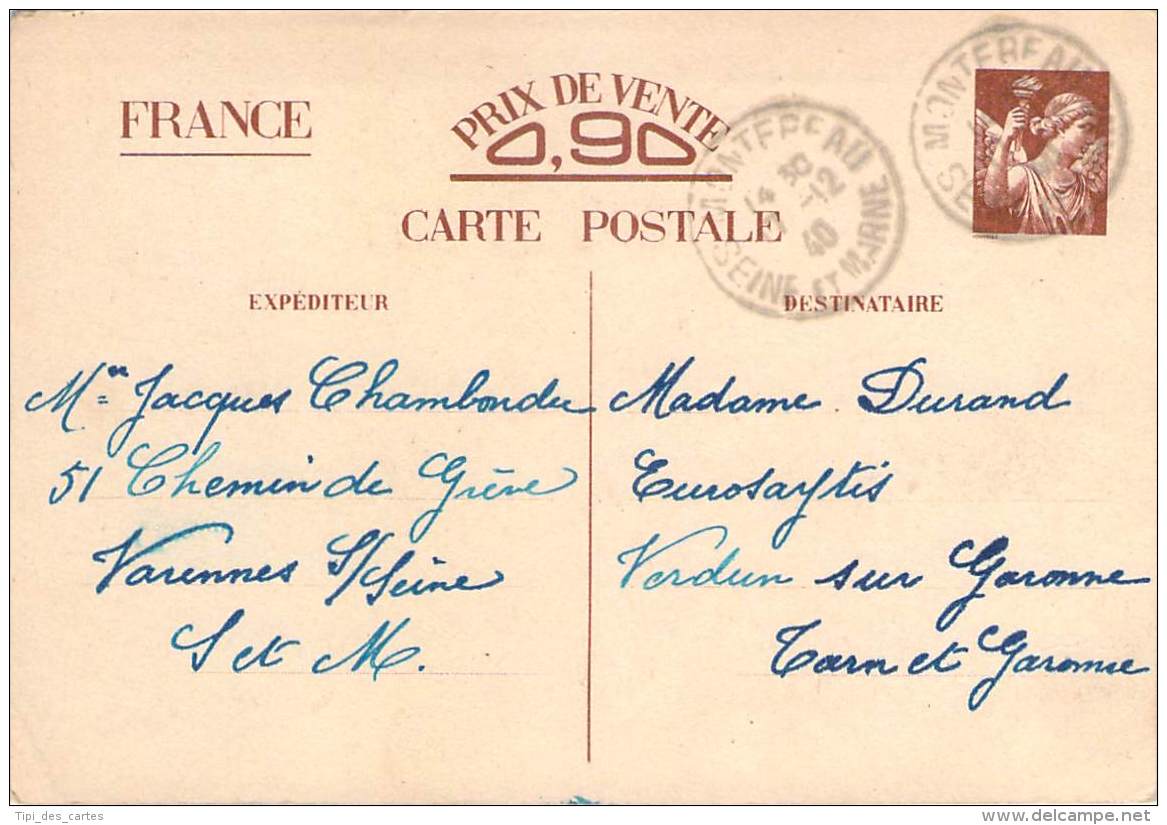 FRANCE
PRIX DE VENTE
0,90
CARTE POSTALE
MONTEREAU
14 30
-12
40
SEINE ET MARNE
MONTEREAU
EXPÉDITEUR
Jacques Chambondu
51 Chemin de Grève
Varennes S/Seine
S et M.
DESTINATAIRE
Madame Durand
Verdun sur Garonne
Tarn et Garonne
Tipi_des_cartes
delcampe.net